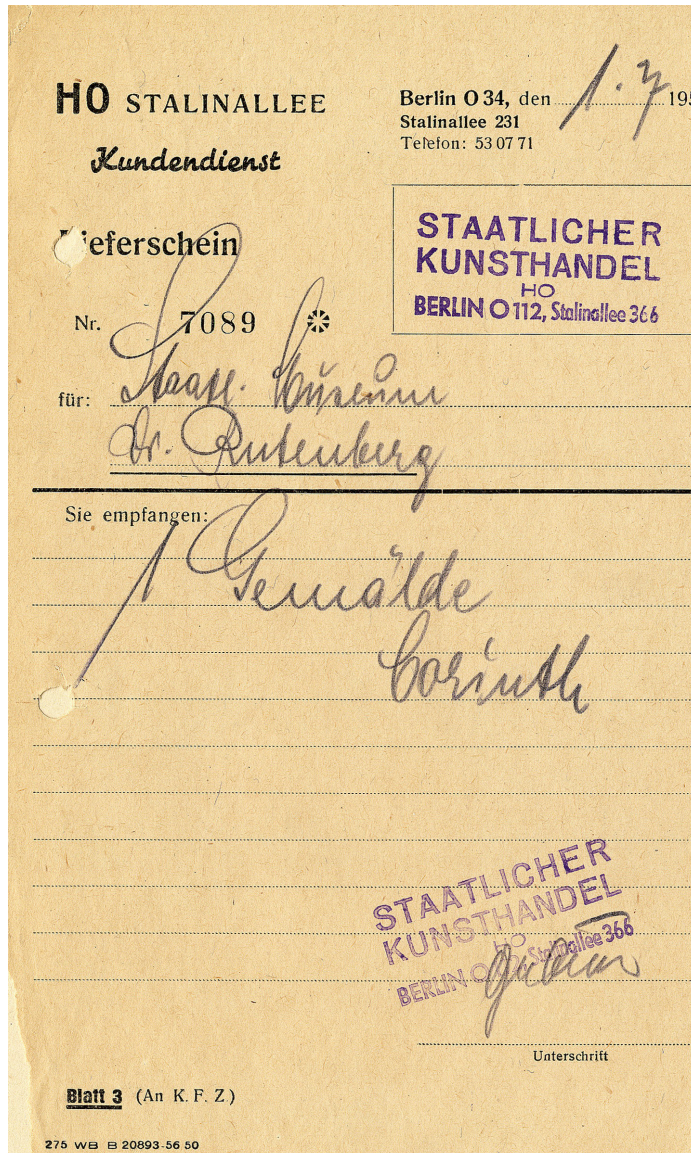 HO STALINALLEE
Kundendienst
Berlin O 34, den 1. 7 195
Stalinallee 231
Telefon: 53 07 71
STAATLICHER
KUNSTHANDEL
HO
BERLIN O 112, Stalinallee 366
Lieferschein
Nr. 7089
für: Staatl. Museum
Dr. Rutenberg
Sie empfangen:
1 Gemälde
Corinth
STAATLICHER
KUNSTHANDEL
HO
BERLIN O Stalinallee 366
Unterschrift
Blatt 3 (An K. F. Z.)
275 WB B 20893-56 50